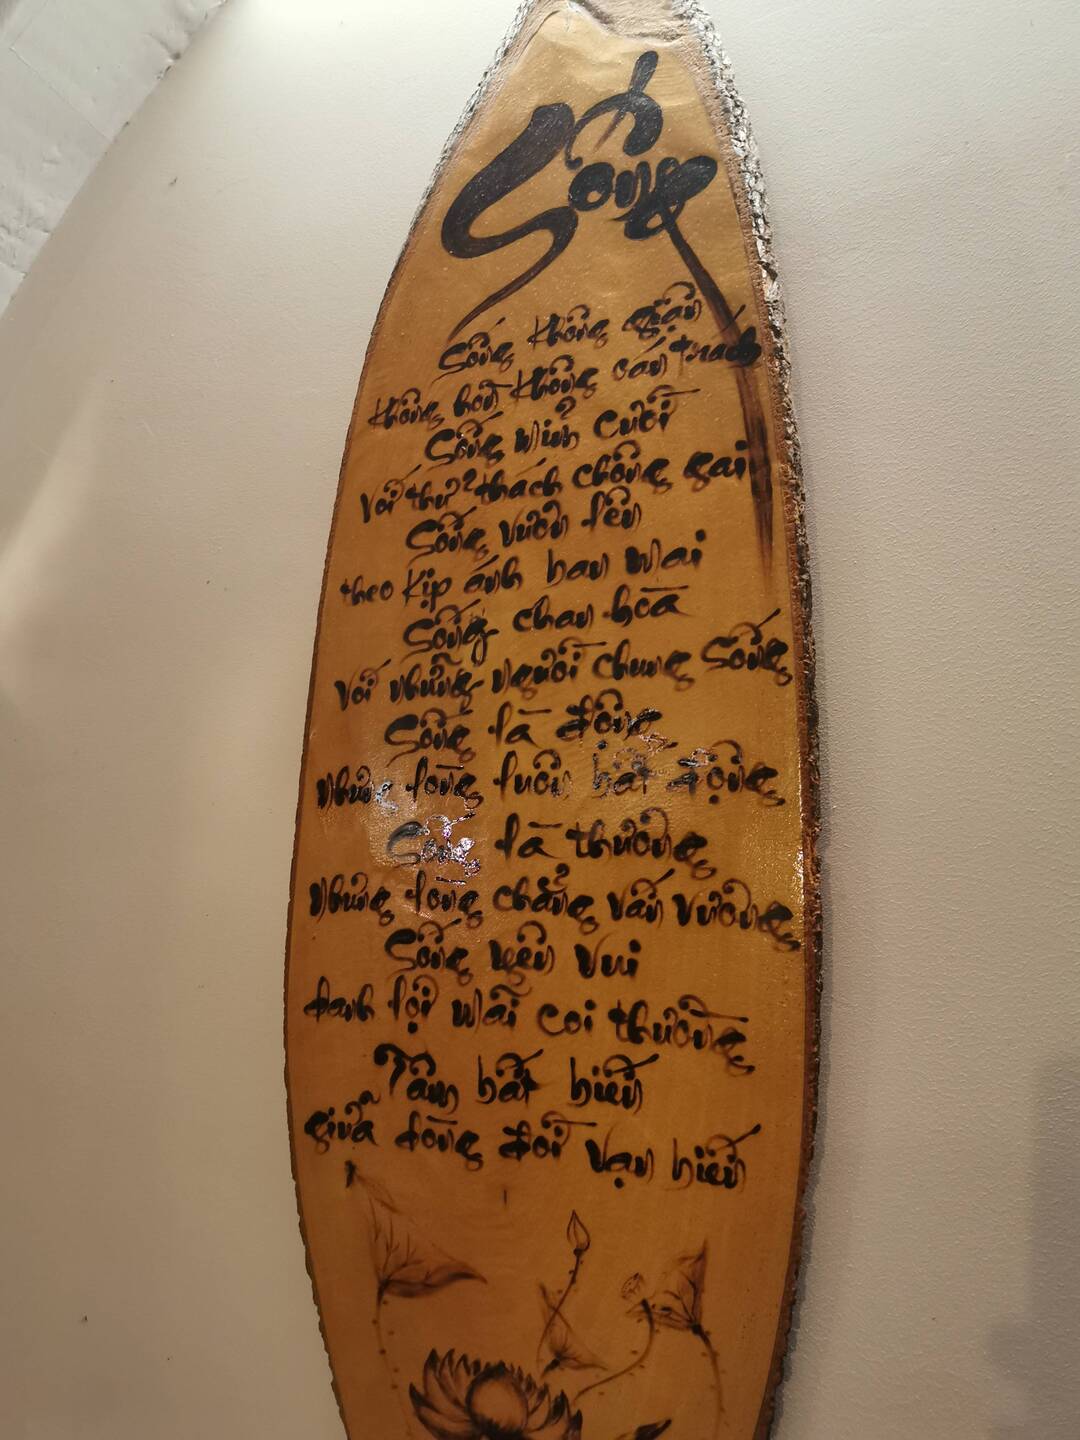 Sống
Sống không giận
không hờn không oán trách
Sống mỉm cười
Với thử thách chông gai
Sống vươn lên
theo kịp ánh ban mai
Sống chan hoà
Với những người chung sống
Sống là động
nhưng lòng luôn bất động
Sống là thương
nhưng lòng chẳng vấn vương
Sống yên vui
danh lợi mãi coi thường
Tâm bất biến
giữa dòng đời vạn biến